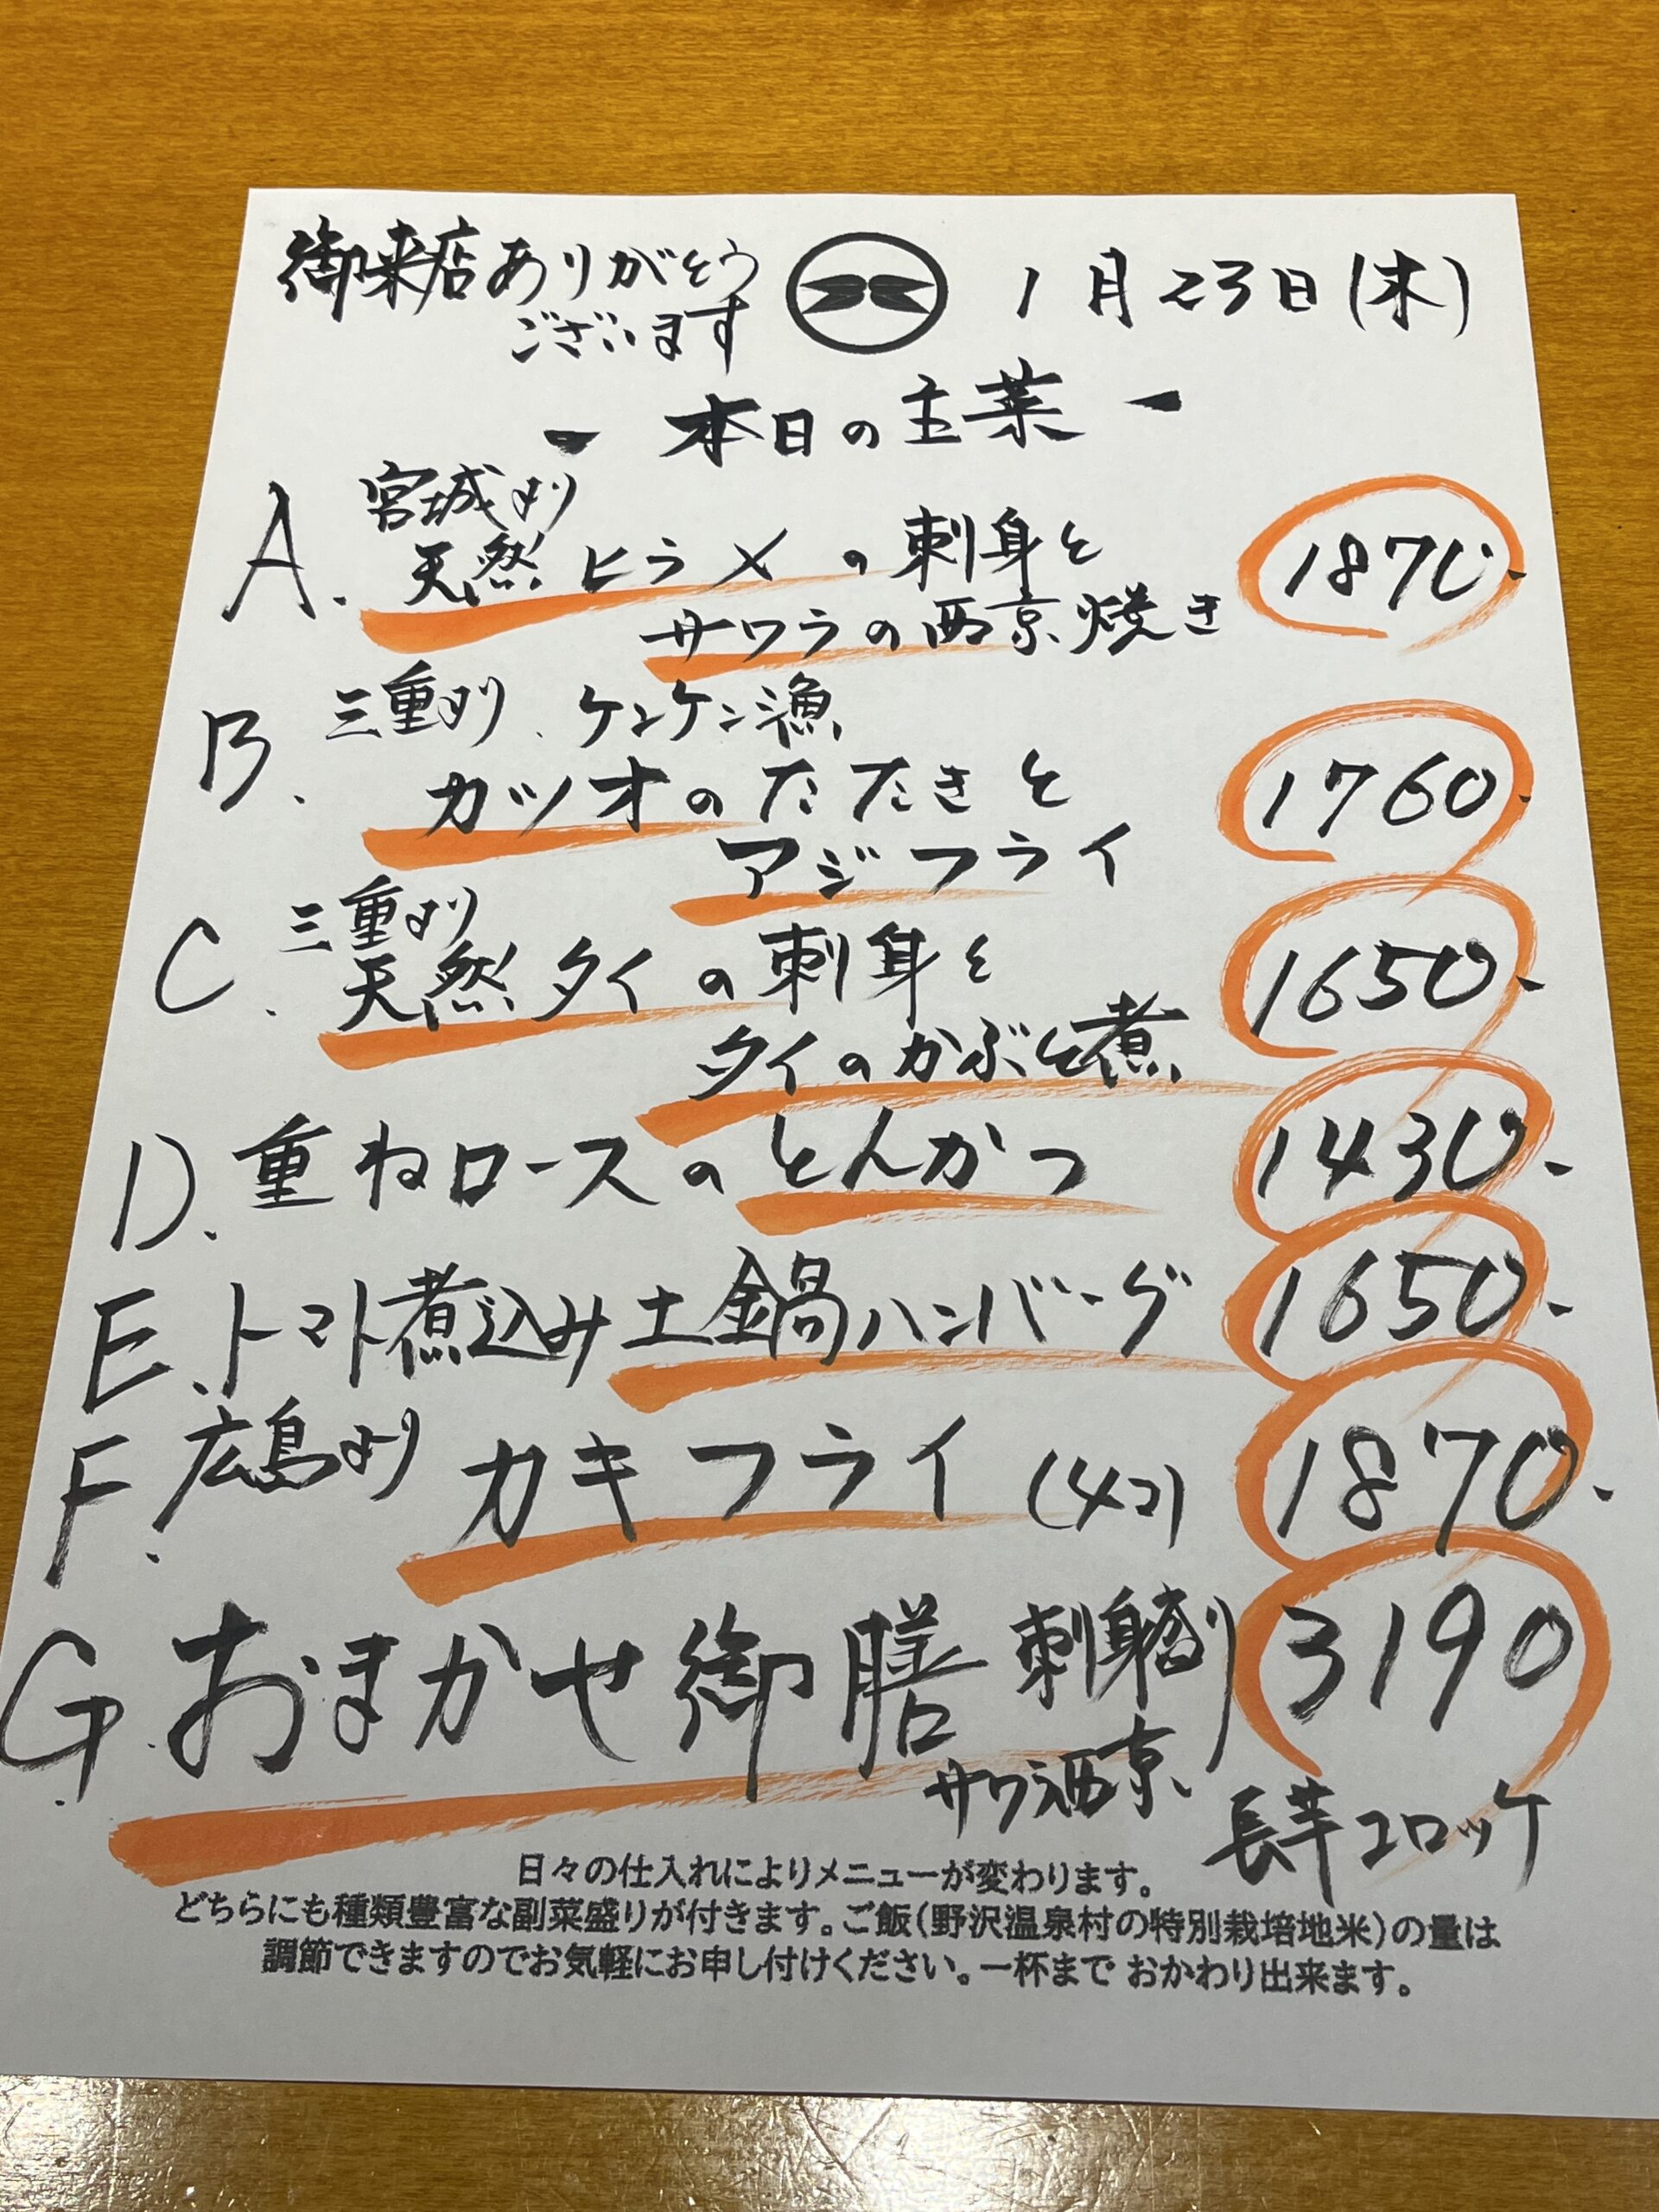 御来店ありがとう
ございます
1月23日(木)
- 本日の主菜 -
A. 宮城より
天然ヒラメの刺身と
サワラの西京焼き
1870.
B. 三重より、ケンケン漁
カツオのたたきと
アジフライ
1760.
C. 三重より
天然タイの刺身と
タイのかぶと煮
1650.
D. 重ねロースのとんかつ 1430.
E. トマト煮込み土鍋ハンバーグ 1650.
F. 広島より カキフライ (4コ) 1870.
G. おまかせ御膳 刺身盛り 3190
サワラ西京、
長芋コロッケ
日々の仕入れによりメニューが変わります。
どちらにも種類豊富な副菜盛りが付きます。ご飯(野沢温泉村の特別栽培地米)の量は
調節できますのでお気軽にお申し付けください。一杯まで おかわり出来ます。